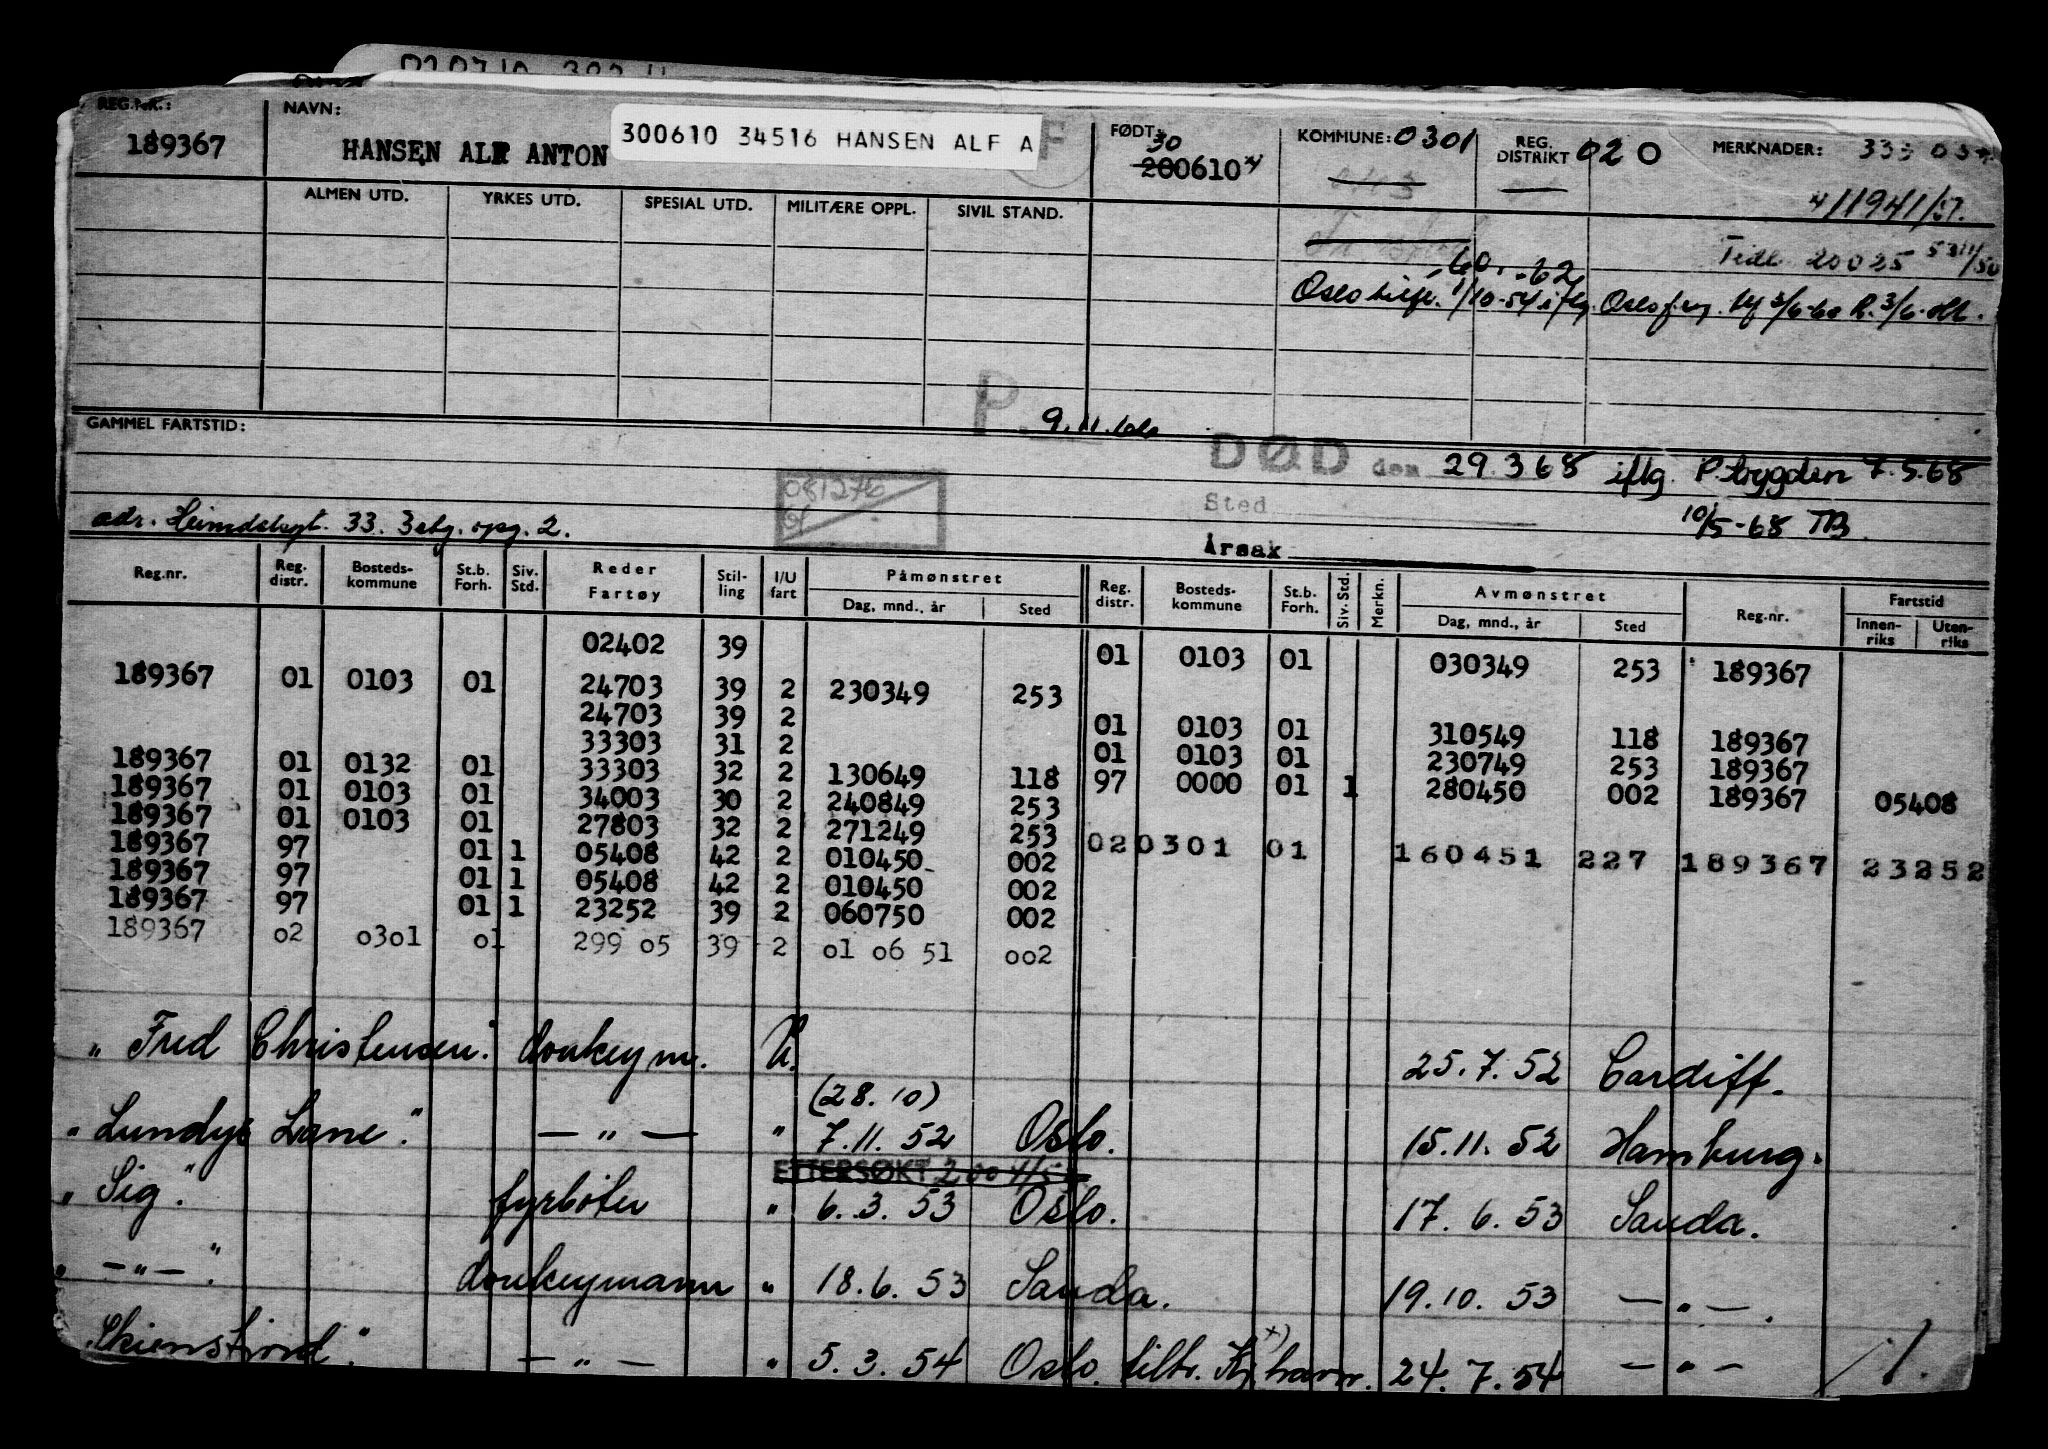 REG.NR.: NAVN: FØDT: KOMMUNE: 0301 REG. DISTRIKT 020 MERKNADER:
189367 HANSEN ALF ANTON 300610 34516 HANSEN ALF A 30 200610
ALMEN UTD. YRKES UTD. SPESIAL UTD. MILITÆRE OPPL. SIVIL STAND. 11941/57.
Tidl. 20025
-60, -62
Oslo 1/10-54 3/6-60
P. 9.11.66
GAMMEL FARTSTID:
DØD den 29.3 68 iflg. P.trygden 7.5.68
081276
Sted
adr. Heimdalsgt. 33. 3 etg. opg. 2. 10/5-68 TB
Årsak
Reg.nr. Reg. distr. Bosteds-kommune St.b. Forh. Siv. Std. Reder Fartøy Stil-ling I/U fart Påmønstret Dag, mnd., år Sted Reg. distr. Bosteds-kommune St.b. Forh. Siv. Std. Merkn. Avmønstret Dag, mnd., år Sted Reg.nr. Fartstid Innen-riks Uten-riks
02402 39 01 0103 01 030349 253 189367
189367 01 0103 01 24703 39 2 230349 253
24703 39 2 01 0103 01 310549 118 189367
33303 31 2 01 0103 01 230749 253 189367
189367 01 0132 01 33303 32 2 130649 118 97 0000 01 1 280450 002 189367 05408
189367 01 0103 01 34003 30 2 240849 253
189367 01 0103 01 27803 32 2 271249 253 020301 01 160451 227 189367 23252
189367 97 01 1 05408 42 2 010450 002
189367 97 01 1 05408 42 2 010450 002
189367 97 01 1 23252 39 2 060750 002
189367 o2 o3o1 o1 299 o5 39 2 o1 o6 51 oo2
"Fred Christensen." donkeym. U. 25.7.52 Cardiff.
(28.10)
"Lundys Lane". — " — " 7.11.52 Oslo. 15.11.52 Hamburg.
ETTERSØKT
"Sig". fyrbøter " 6.3.53 Oslo. 17.6.53 Sauda.
" — " — ". donkeymann " 18.6.53 Sauda. 19.10.53 — " — .
"Skiensfjord". — " — " 5.3.54 Oslo. tiltr. Kj.havn. x) 24.7.54 — " —